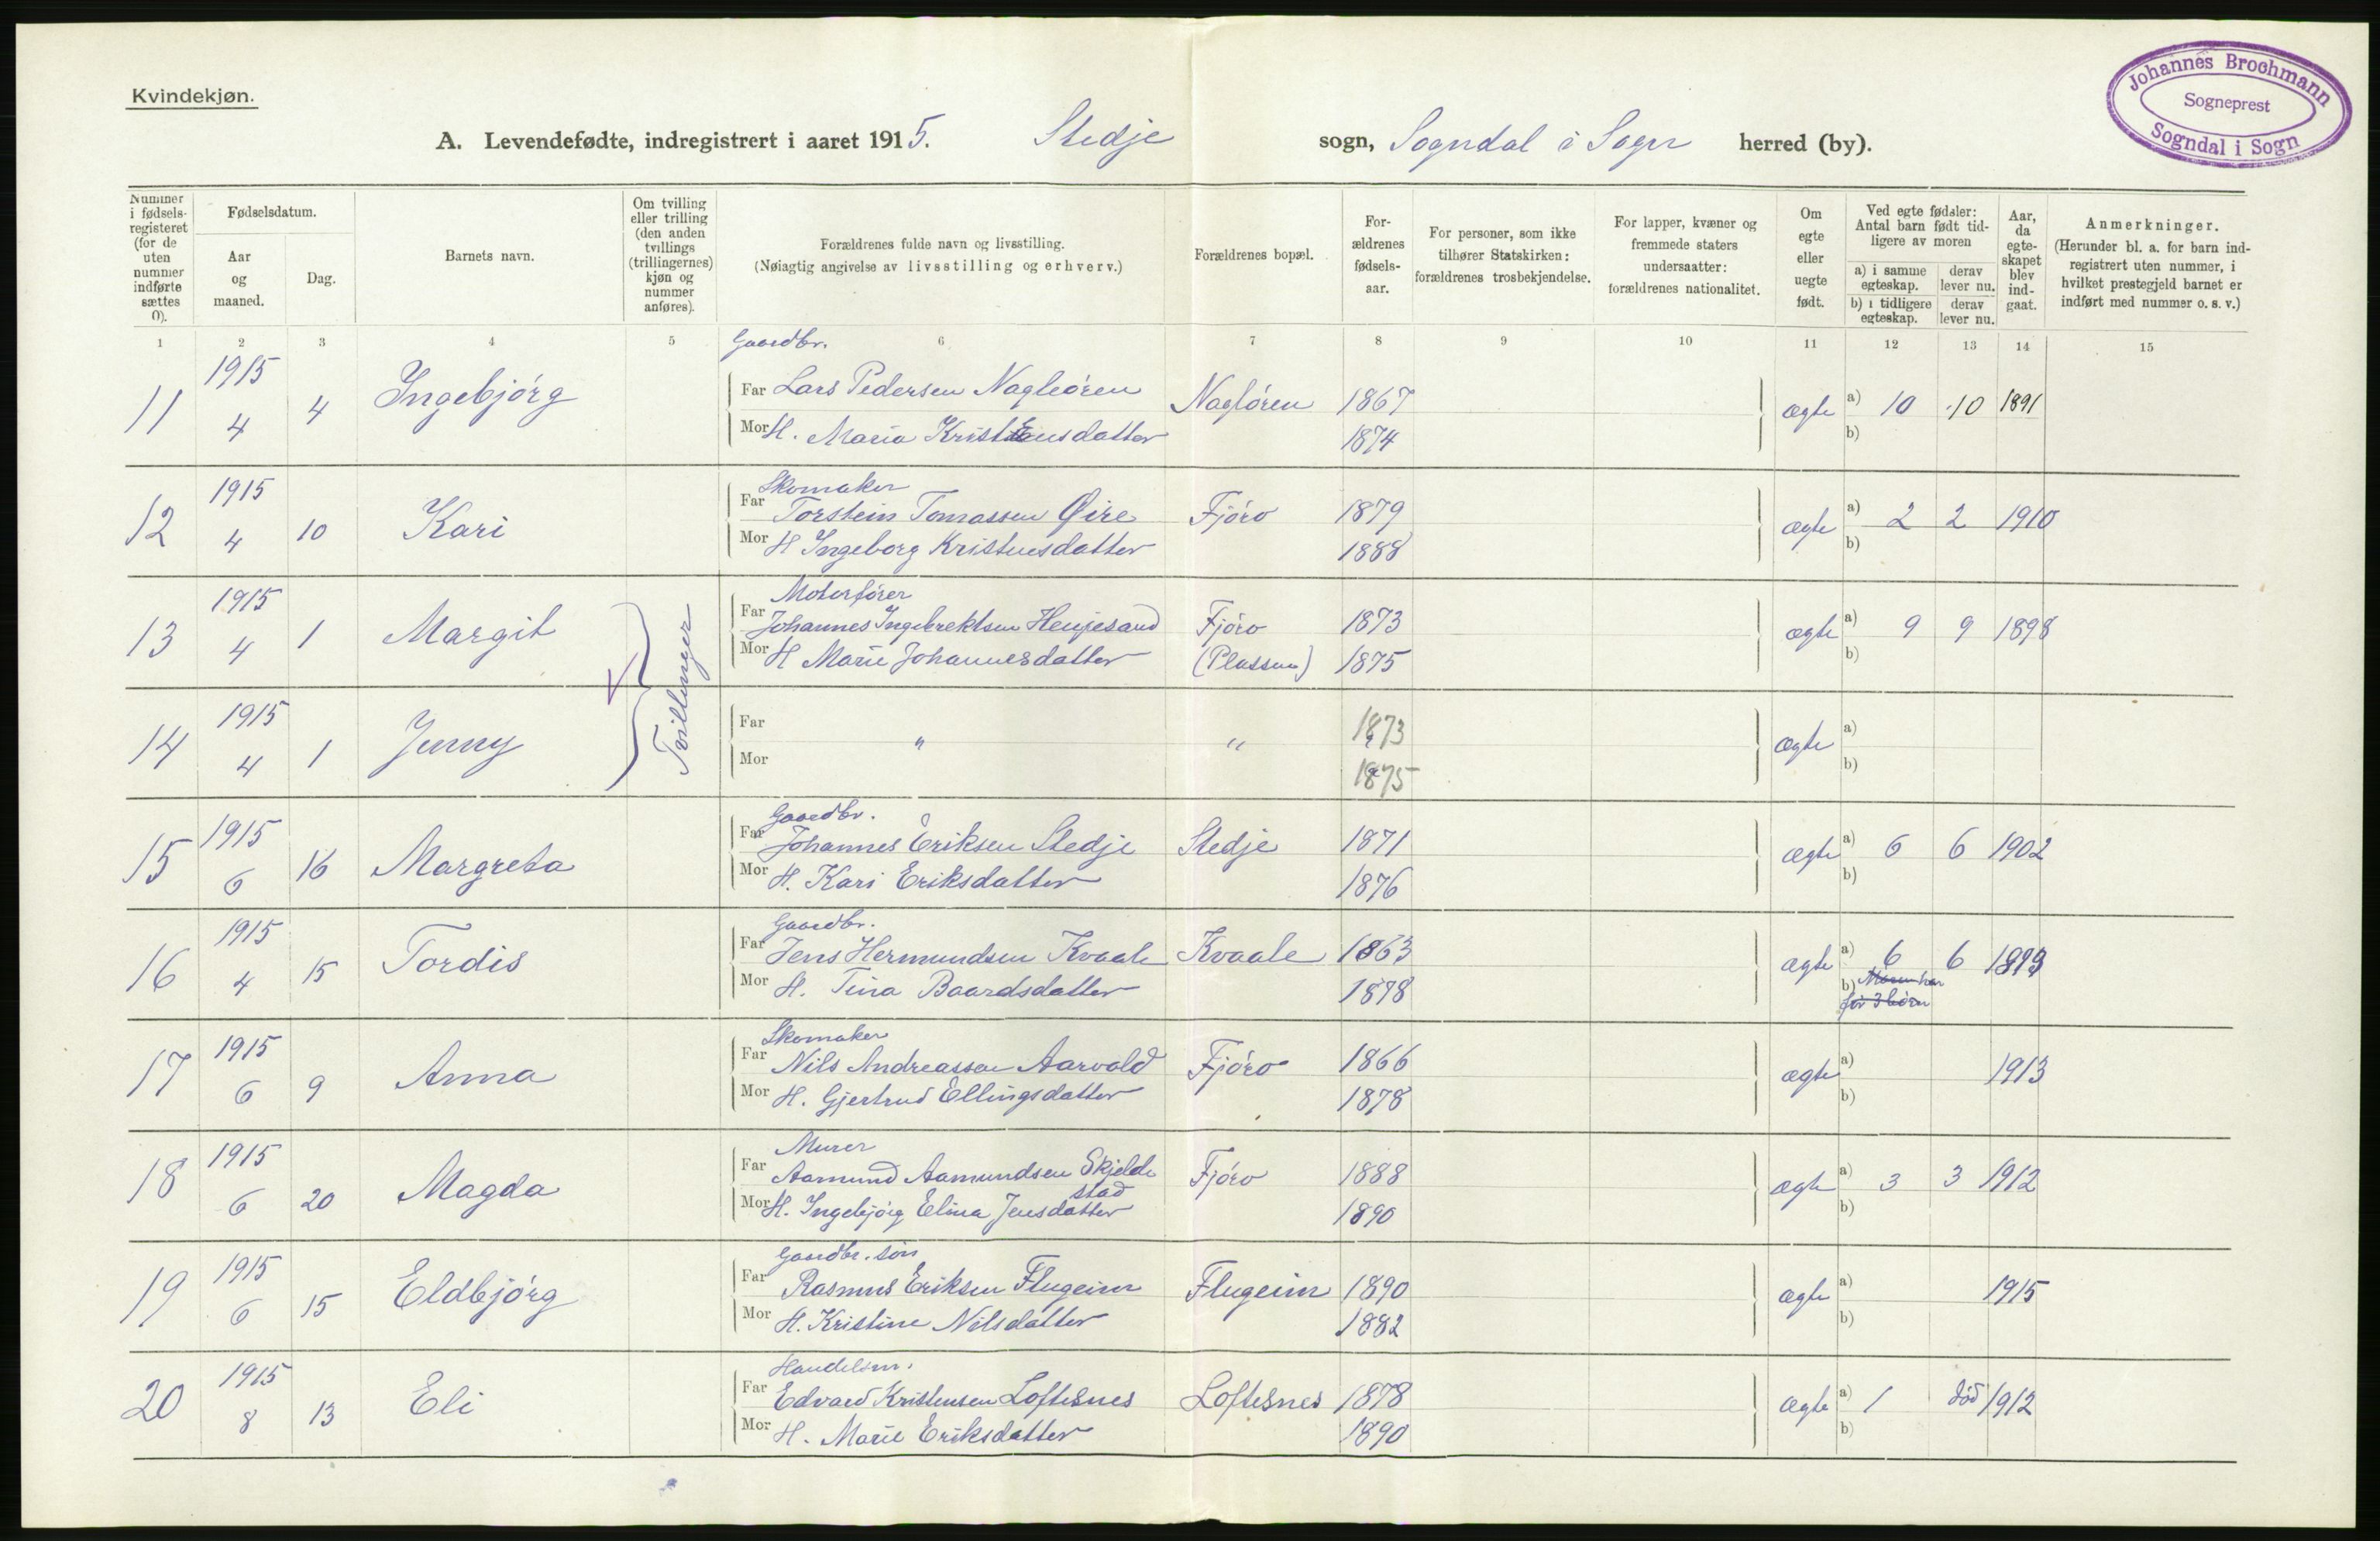 Kvindekjøn.
Johannes Brochmann
Sogneprest
Sogndal i Sogn
A. Levendefødte, indregistrert i aaret 1915. Stedje sogn, Sogndal i Sogn herred (by).
Nummer i fødsels-registeret (for de uten nummer indførte sættes 0).
Fødselsdatum.
Aar og maaned.
Dag.
Barnets navn.
Om tvilling eller trilling (den anden tvillings (trillingernes) kjøn og nummer anføres).
Forældrenes fulde navn og livsstilling.
(Nøiagtig angivelse av livsstilling og erhverv.)
Forældrenes bopæl.
For-ældrenes fødsels-aar.
For personer, som ikke tilhører Statskirken: forældrenes trosbekjendelse.
For lapper, kvæner og fremmede staters undersaatter: forældrenes nationalitet.
Om egte eller uegte født.
Ved egte fødsler: Antal barn født tid-ligere av moren
a) i samme egteskap. derav lever nu.
b) i tidligere egteskap. derav lever nu.
Aar, da egte-skapet blev ind-gaat.
Anmerkninger.
(Herunder bl. a. for barn ind-registrert uten nummer, i hvilket prestegjeld barnet er indført med nummer o. s. v.)
1 2 3 4 5 6 7 8 9 10 11 12 13 14 15
Gaardbr.
11 1915 4 4 Ingebjörg Far Lars Pedersen Nagleören Naglören 1867 ægte a) 10 10 1891
Mor H. Maria Kristensdatter 1874 b)
Skomaker
12 1915 4 10 Kari Far Torstein Tomassen Øire Fjöro 1879 ægte a) 2 2 1910
Mor H Ingeborg Kristensdatter 1888 b)
Motorfører
13 1915 4 1 Margit Tvillinger Far Johannes Ingebrektsen Henjesand Fjöro 1873 ægte a) 9 9 1898
Mor H Marie Johannesdatter (Plassen) 1875 b)
14 1915 4 1 Jenny Far " " 1873 ægte a)
Mor 1875 b)
Gaardbr.
15 1915 6 16 Margreta Far Johannes Eriksen Stedje Stedje 1871 ægte a) 6 6 1902
Mor H. Kari Eriksdatter 1876 b)
Gaardbr.
16 1915 4 15 Tordis Far Jens Hermundsen Kvaale Kvaale 1863 ægte a) 6 6 1893
Mor H. Tina Baardsdatter 1878 b) Moren har
før 3 børn
Skomaker
17 1915 6 9 Anna Far Nils Andreassen Aarvold Fjöro 1866 ægte a) 1913
Mor H. Gjertrud Ellingsdatter 1878 b)
Murer
18 1915 6 20 Magda Far Aamund Aamundsen Skjelde Fjöro 1888 ægte a) 3 3 1912
stad
Mor H. Ingebjörg Elina Jensdatter 1890 b)
Gaardbr. sön
19 1915 6 15 Eldbjörg Far Rasmus Eriksen Flugeim Flugeim 1890 ægte a) 1915
Mor H. Kristine Nilsdatter 1882 b)
Handelsm.
20 1915 8 13 Eli Far Edvard Kristensen Loftesnes Loftesnes 1878 ægte a) 1 död 1912
Mor H. Marie Eriksdatter 1890 b)